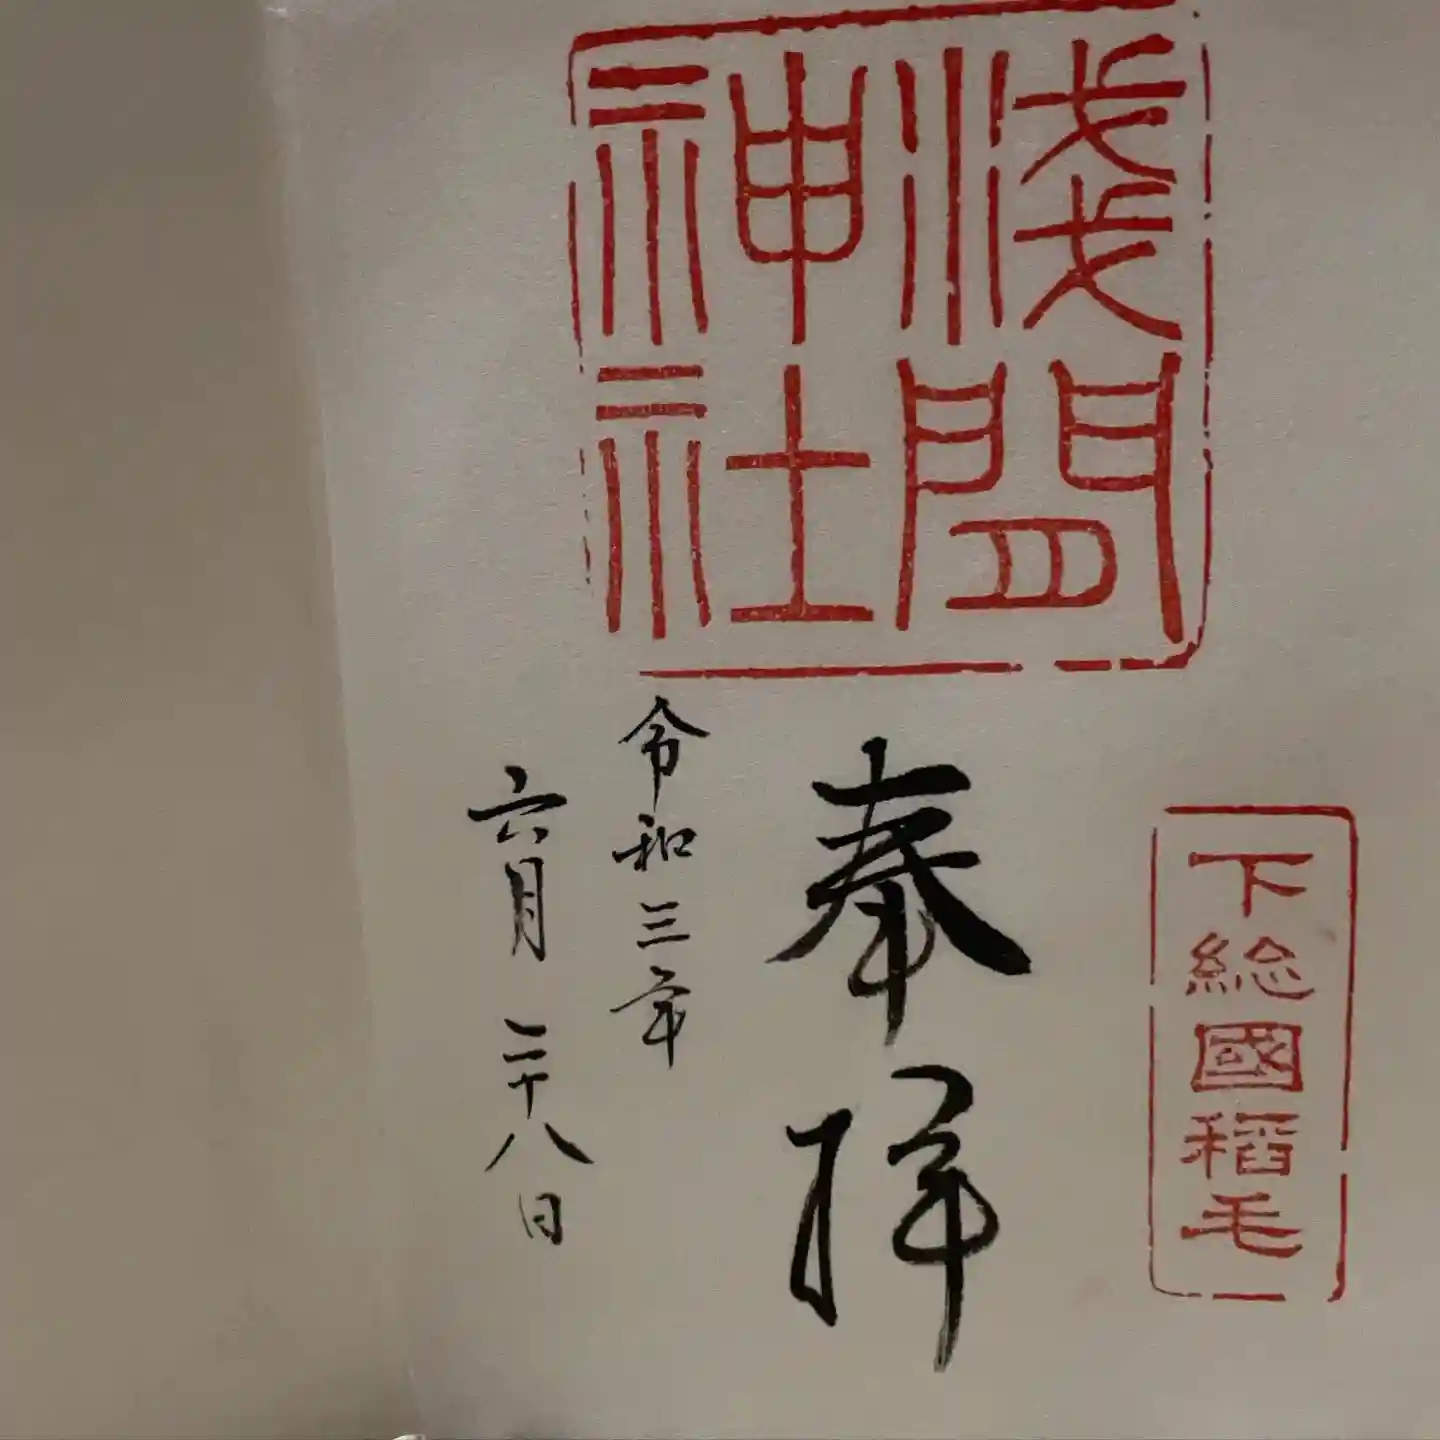 淺間
神社
下総國稲毛
奉拝
令和三年
六月二十八日